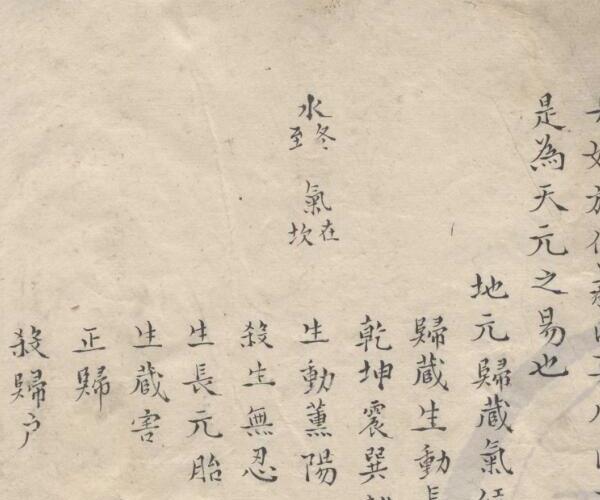 是為天元之易也
地元歸藏氣
歸藏生動長
乾坤震巽
水冬至 氣在坎
生動薰陽
殺生無忍
生長元胎
生藏害
正歸
殺歸戶